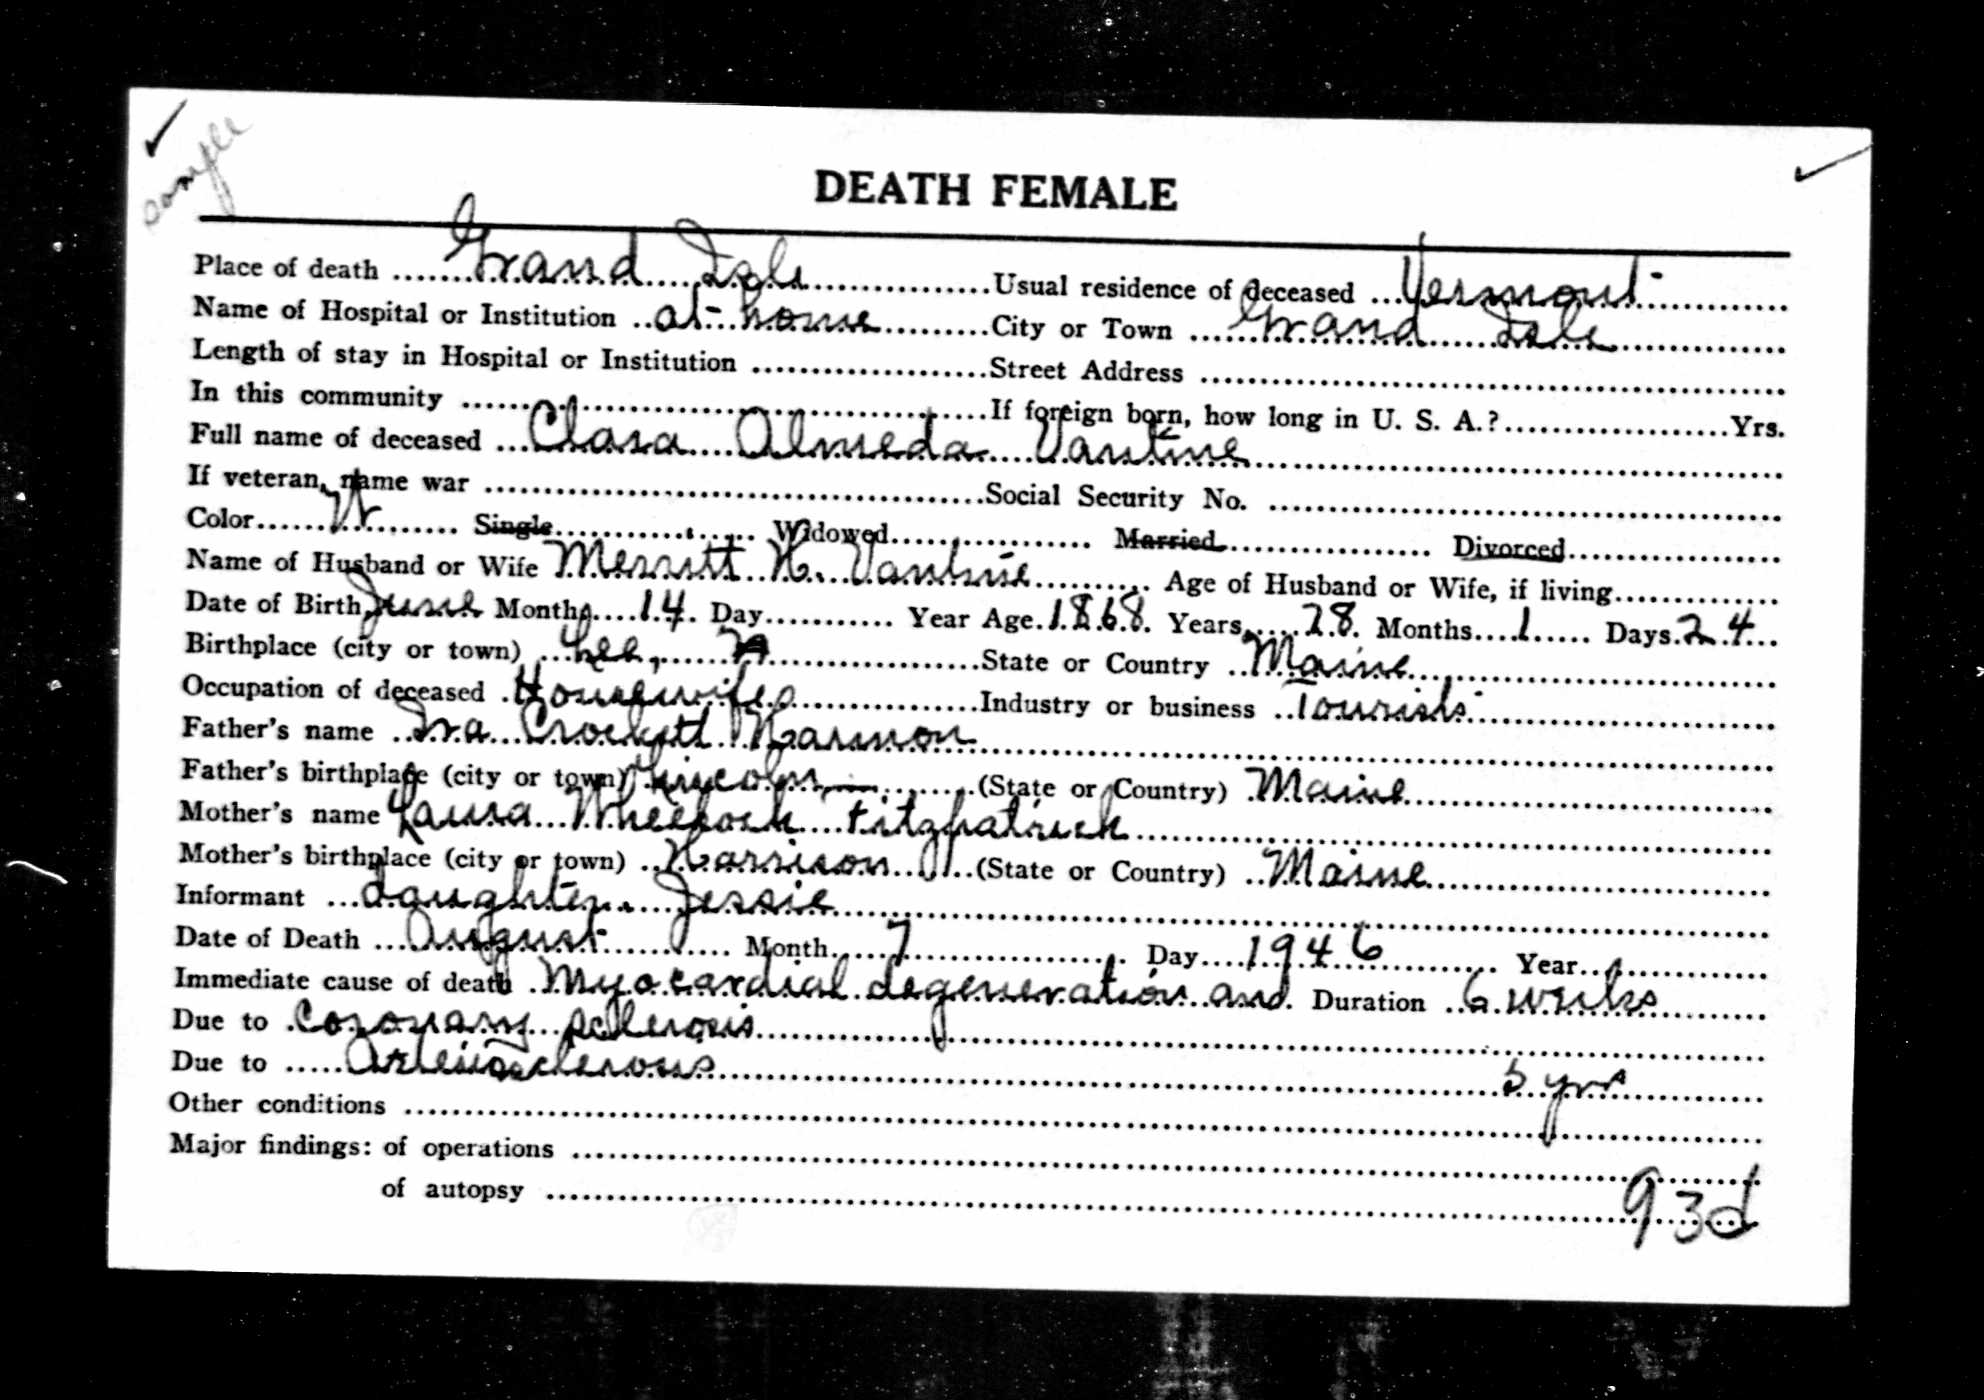 comple
DEATH FEMALE
Place of death Grand Isle Usual residence of deceased Vermont
Name of Hospital or Institution at home City or Town Grand Isle
Length of stay in Hospital or Institution Street Address
In this community If foreign born, how long in U. S. A.? Yrs.
Full name of deceased Clara Almeda Vantine
If veteran, name war Social Security No.
Color W Single Widowed Married Divorced
Name of Husband or Wife Merritt H. Vantine Age of Husband or Wife, if living
Date of Birth June Month 14 Day Year Age 1868 Years 78 Months 1 Days 24
Birthplace (city or town) Lee, State or Country Maine
Occupation of deceased Housewife Industry or business Tourists
Father's name Ira Crockett Harmon
Father's birthplace (city or town) Lincoln (State or Country) Maine
Mother's name Laura Wheelock Fitzpatrick
Mother's birthplace (city or town) Harrison (State or Country) Maine
Informant daughter, Jessie
Date of Death August Month 7 Day 1946 Year
Immediate cause of death Myocardial degeneration and Duration 6 weeks
Due to Coronary sclerosis
Due to Arteriosclerosis 5 yrs
Other conditions
Major findings: of operations
of autopsy
93d